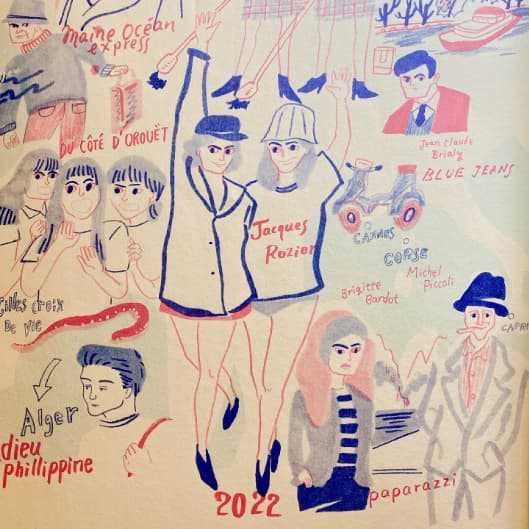 Maine Océan
express
DU CÔTÉ D'OROUËT
Jean Claude
Brialy
BLUE JEANS
Jacques
Rozier
CANNES
CORSE
Michel
Piccoli
Brigitte
Bardot
Gilles croix
De vie
CAPRI
Alger
dieu
phillippine
paparazzi
2022